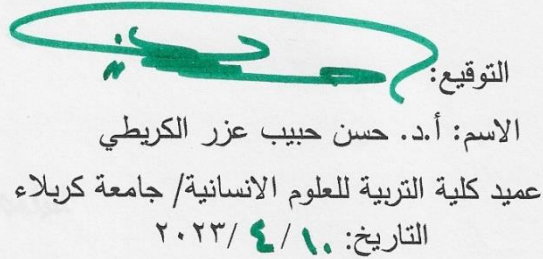 التوقيع:
الاسم: أ.د. حسن حبيب عزر الكريطي
عميد كلية التربية للعلوم الانسانية/ جامعة كربلاء
التاريخ: ١٠/ ٤ /٢٠٢٣